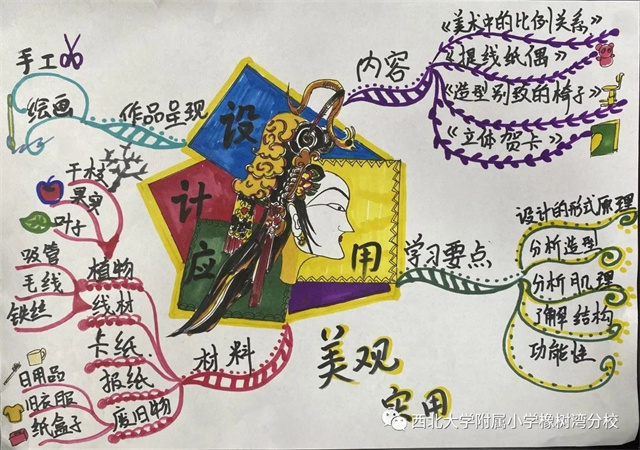 手工
绘画
作品呈现
设
计
应
用
内容
《美术中的比例关系》
《提线纸偶》
《造型别致的椅子》
《立体贺卡》
学习要点
设计的形式原理
分析造型
分析肌理
了解结构
功能性
材料
植物
干枝
果实
叶子
线材
吸管
毛线
铁丝
卡纸
报纸
废旧物
日用品
旧衣服
纸盒子
美观
实用
西北大学附属小学橡树湾分校